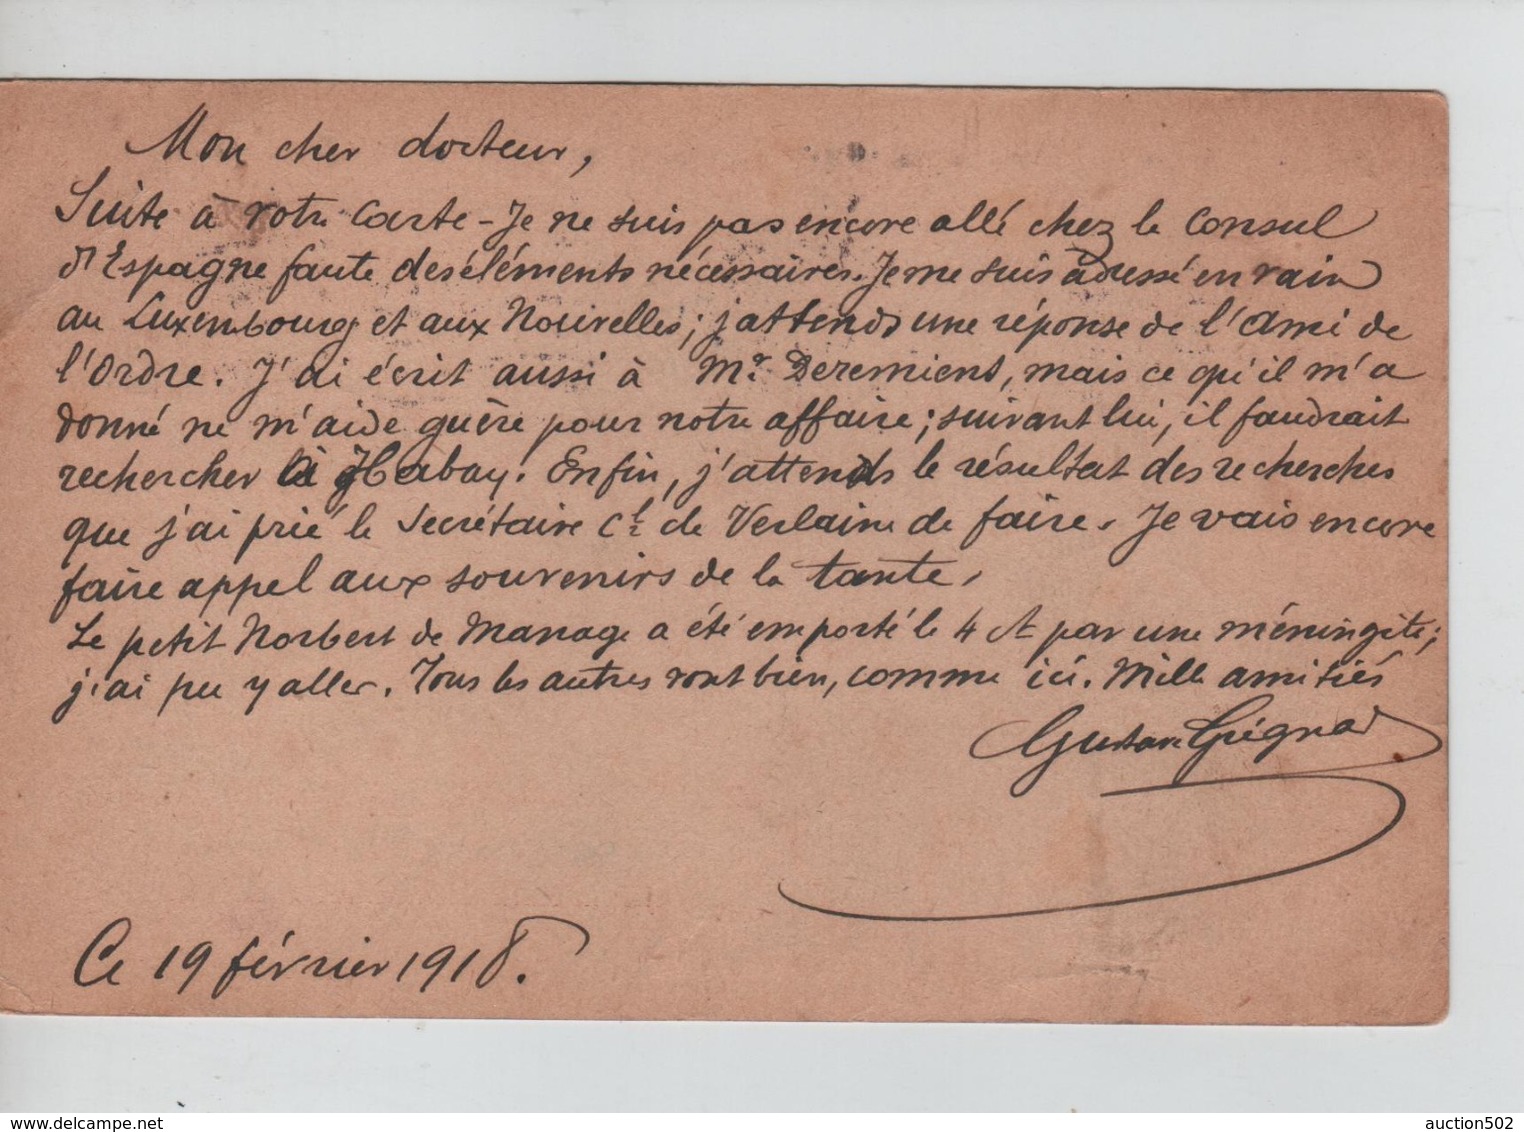 Mon cher docteur,
Suite à votre carte - Je ne suis pas encore allé chez le consul
d'Espagne faute des éléments nécessaires. Je me suis adressé en vain
au Luxembourg et aux Nouvelles; j'attends une réponse de l'Ami de
l'Ordre. J'ai écrit aussi à Mr. Deremiens, mais ce qu'il m'a
donné ne m'aide guère pour notre affaire; suivant lui, il faudrait
rechercher à Habay. Enfin, j'attends le résultat des recherches
que j'ai prié le Secrétaire Cl de Verlaine de faire. Je vais encore
faire appel aux souvenirs de la tante.
Le petit Norbert de Manage a été emporté le 4 ct par une méningite;
j'ai pu y aller. Tous les autres vont bien, comme ici. Mille amitiés
Gustave Grégnard
Ce 19 février 1918.
auction502